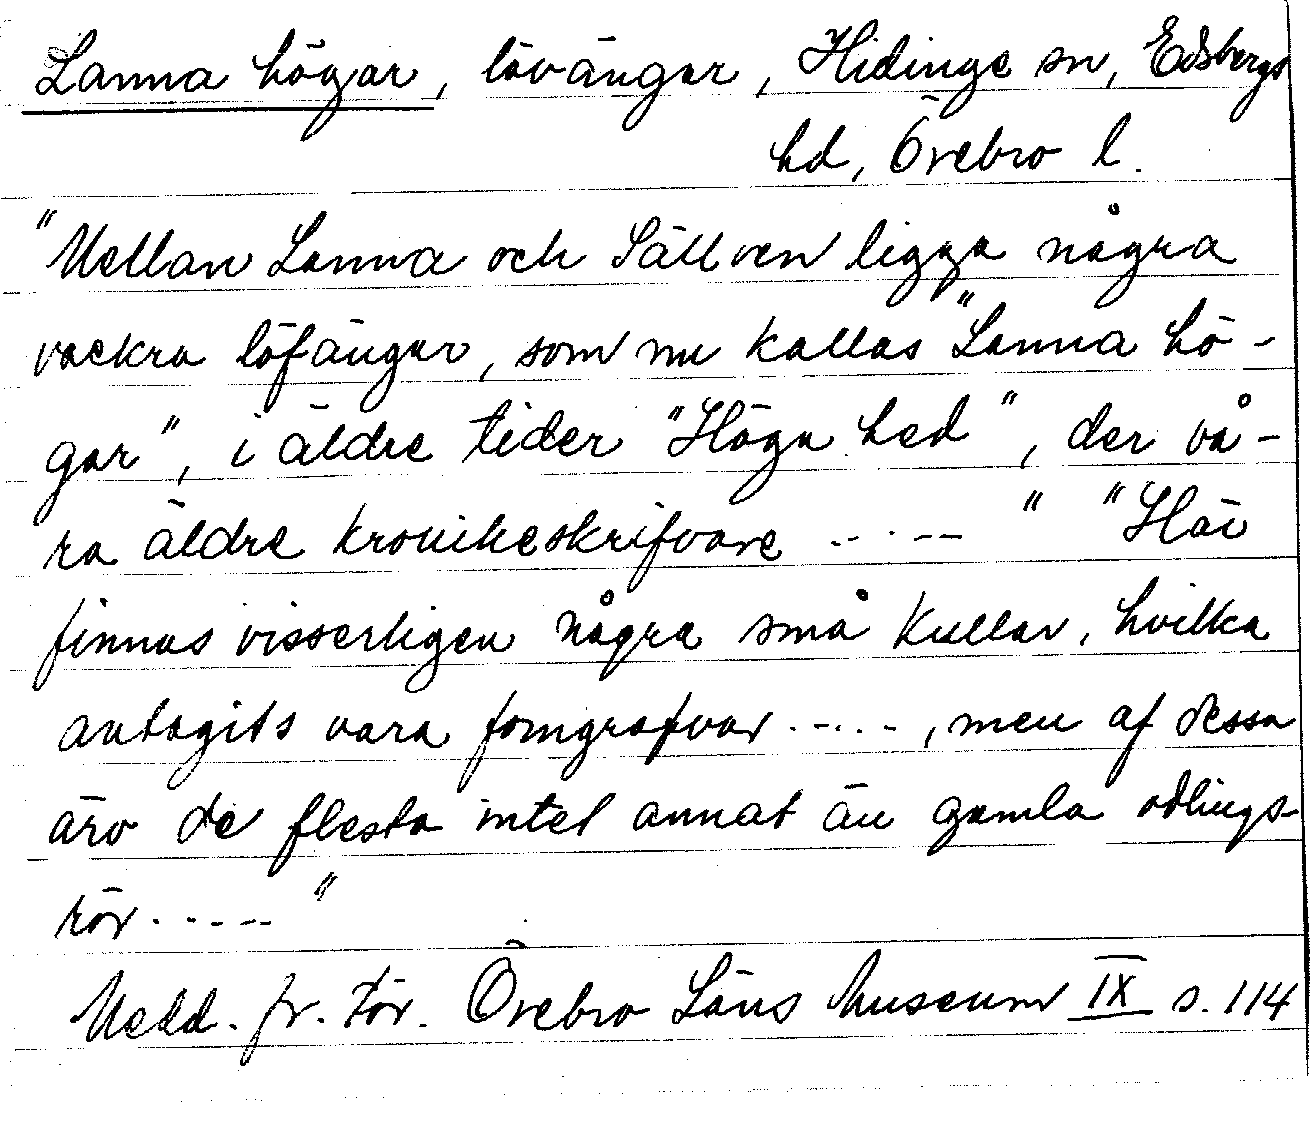 Lanna högar, lövängar, Hidinge sn, Edsbergs
hd, Örebro l.
"Mellan Lanna och Sällven ligga några
vackra löfängar, som nu kallas "Lanna hö-
gar", i äldre tider "Höga hed", der vå-
ra äldre kronikeskrifvare ....." "Här
finnas visserligen några små kullar, hvilka
antagits vara forngrafvar ....., men af dessa
äro de flesta intet annat än gamla odlings-
rör ....."
Medd. fr. för. Örebro Läns Museum IX s. 114